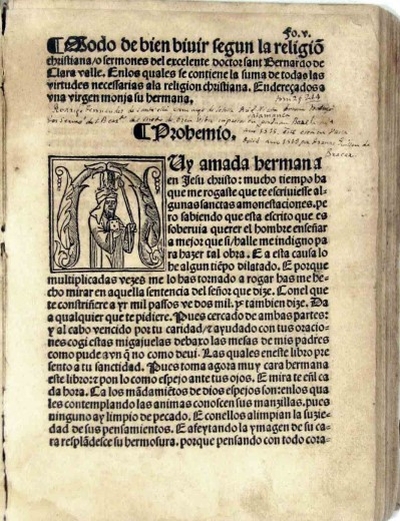 Fo. v.
¶ Modo de bien biuir segun la religiõ
christiana/o sermones del excelente doctor sant Bernardo de
Clara valle. Enlos quales se contiene la suma de todas las
virtudes necessarias ala religion christiana. Endereçados a
vna virgen monja su hermana.
¶ Prohemio.
Uy amada hermana
en Jesu christo: mucho tiempo ha
que me rogaste que te escriuiesse al-
gunas sanctas amonestaciones. pe-
ro sabiendo que esta escrito que es
soberuia querer el hombre enseñar
a mejor que si/halle me indigno pa
ra hazer tal obra. E a esta causa lo
he algun tiẽpo dilatado. E porque
multiplicadas vezes me lo has tornado a rogar has me he-
cho mirar en aquella sentencia del señor que dize. Con el que
te constriñere a yr mil passos ve dos mil. y tambien dize. Da
a qualquier que te pidiere. Pues cercado de ambas partes:
y al cabo vencido por tu caridad/y ayudado con tus oracio-
nes cogi estas migajuelas debaxo las mesas de mis padres
como pude a yn q̃ no como deui. Las quales en este libro pre
sento a tu sanctidad. Pues toma agora muy cara hermana
este libro: z pon lo como espejo ante tus ojos. E mira te eñl ca
da hora. Ca los mãdamiẽtos de dios espejos son: enlos qua
les contemplando las animas conoscen sus manzillas. pues
ninguno ay limpio de pecado. E conellos alimpian la suzie-
dad de sus pensamientos. E afeytando la ymagen de su ca-
ra resplãdesce su hermosura. porque pensando con todo cora-